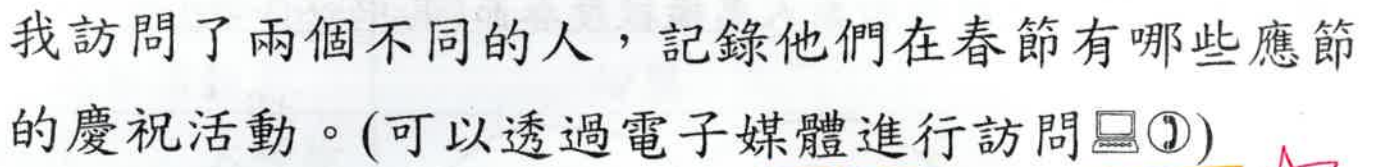 我訪問了兩個不同的人，記錄他們在春節有哪些應節
的慶祝活動。(可以透過電子媒體進行訪問💻✆)